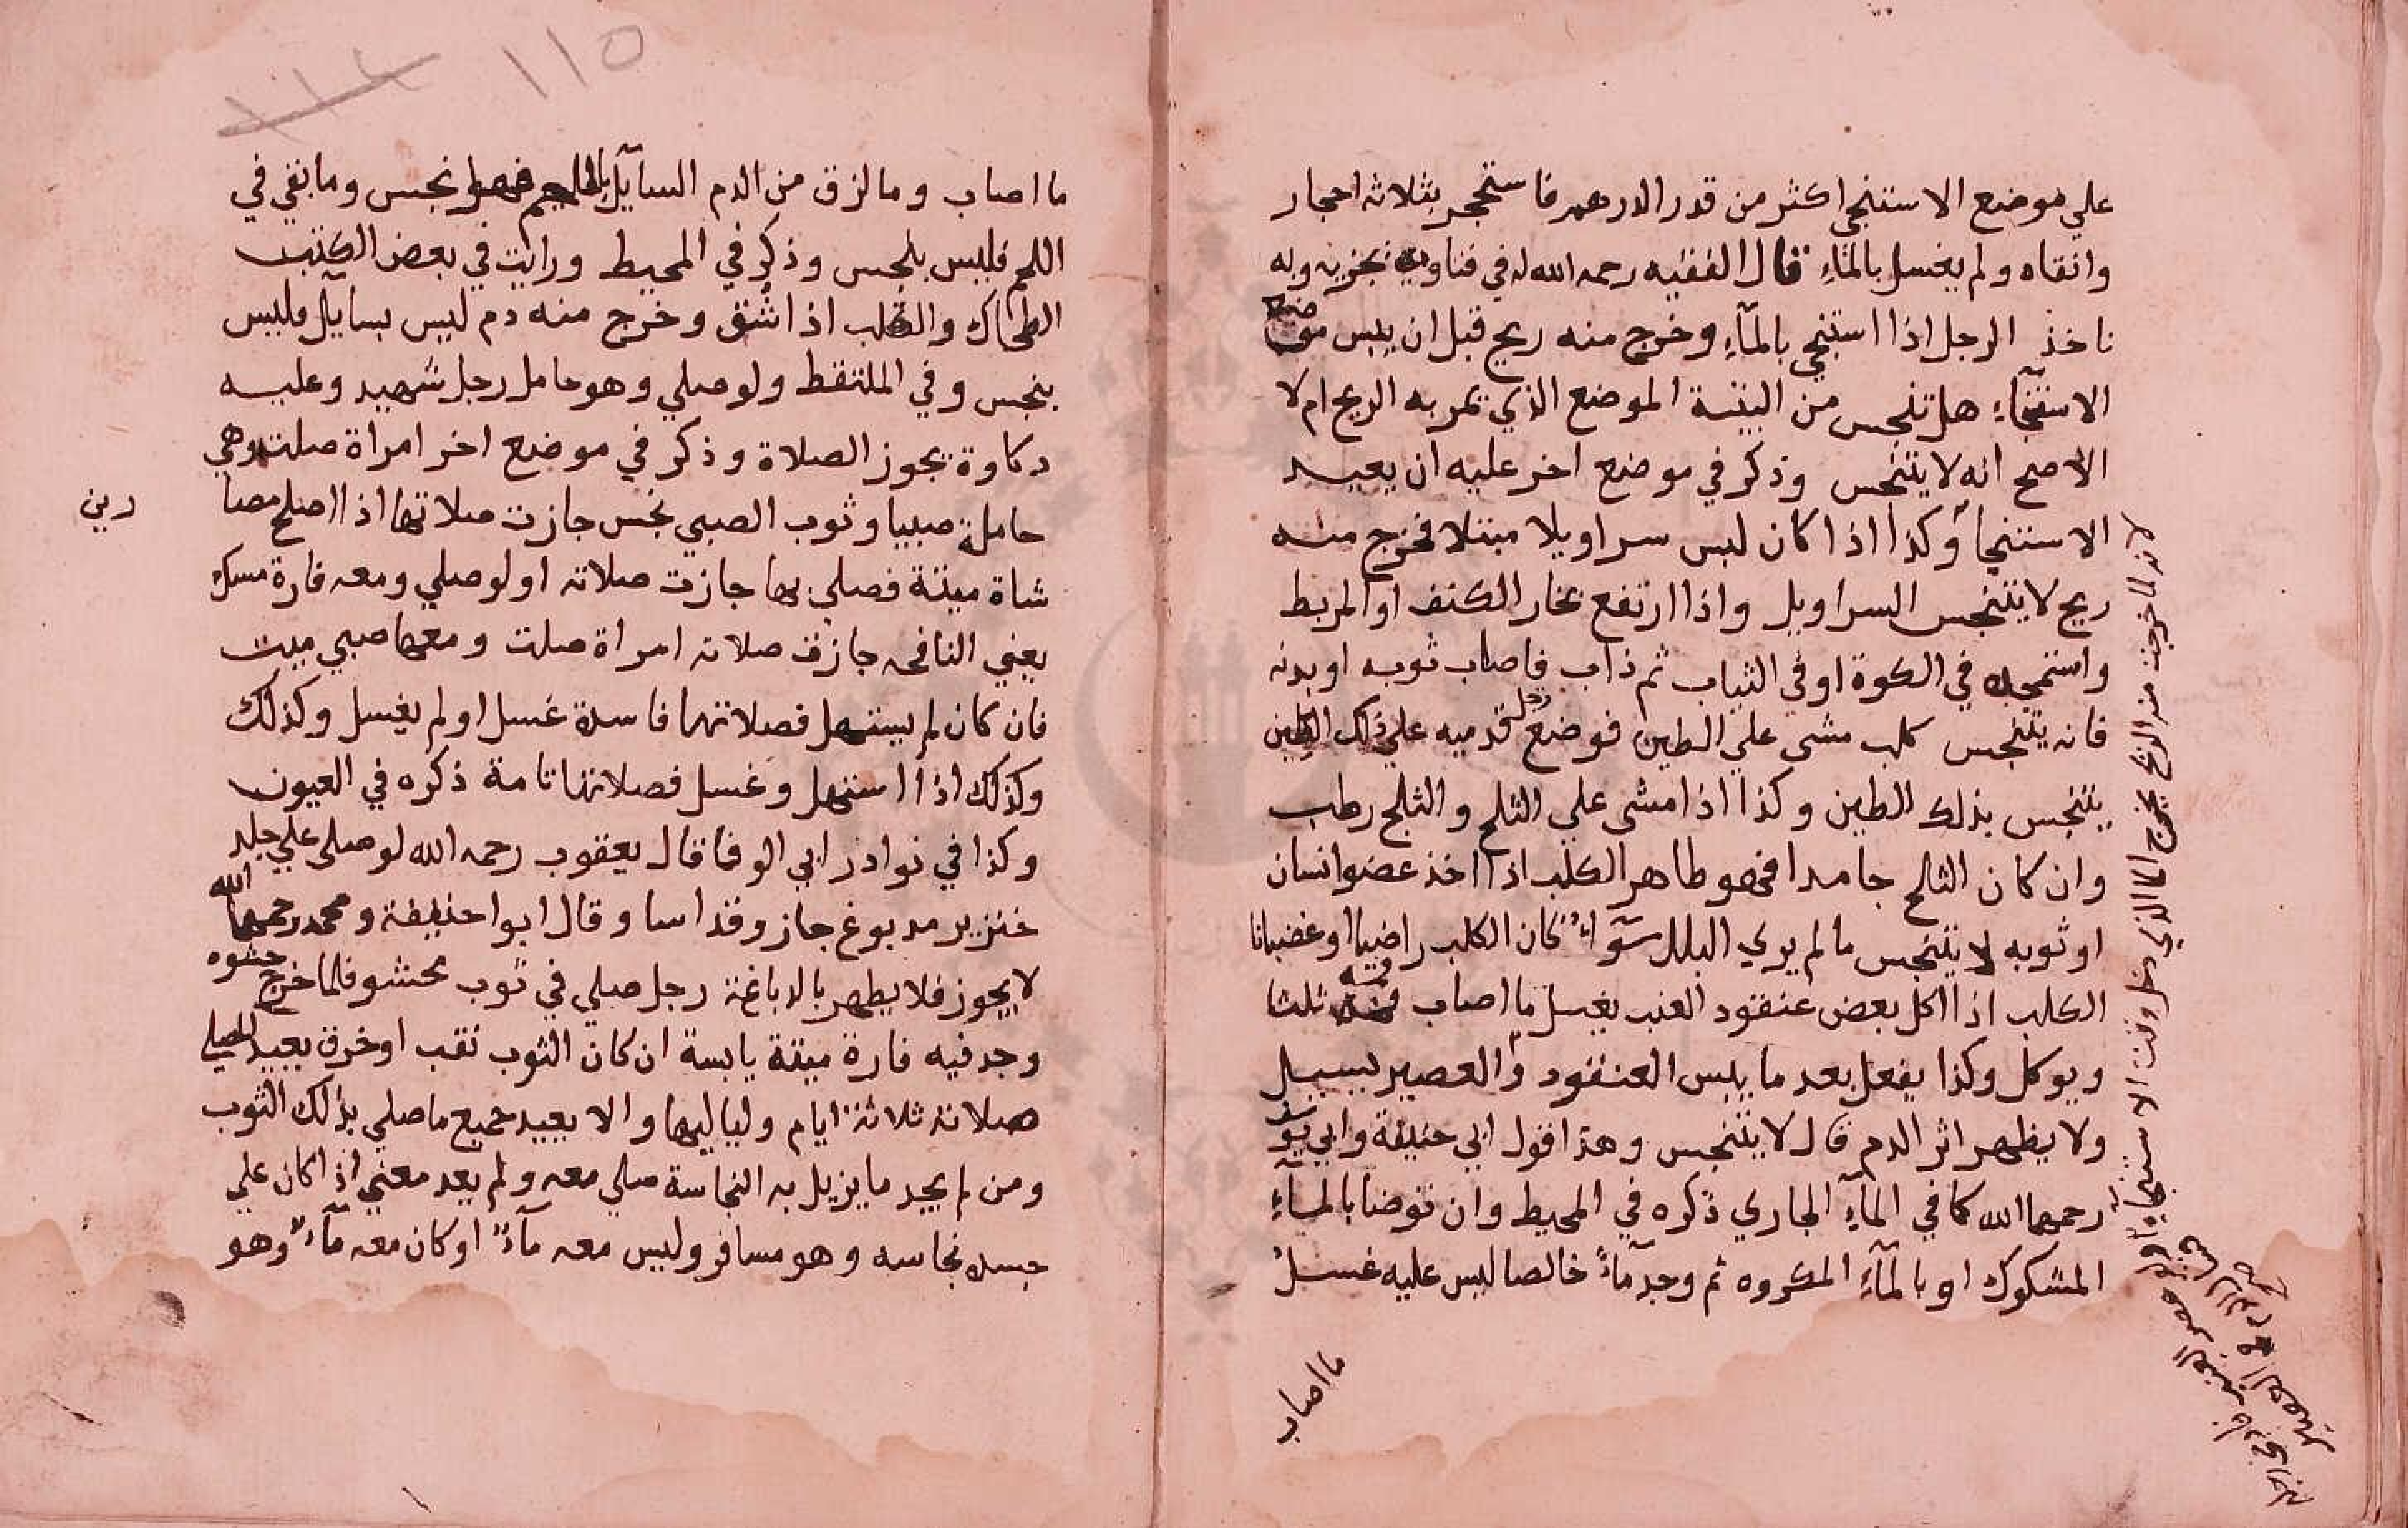 علي موضع الاستنجا اكثر من قدر الدرهم فاستجمر بثلاثه احجار
وانقاه ولم يغسل بالماء قال الفقيه رحمه الله في فتاويه يجزيه وبه
ناخذ الرجل اذا استنجي بالمآء وخرج منه ريح قبل ان ييبس موضع
الاستنجآء هل تنجس من اليتيه الموضع الذي يمر به الريح ام لا
الاصح انه لا يتنجس وذكر في موضع اخر عليه ان يعيد
الاستنجا وكذا اذا كان لبس سراويلا مبتلا فخرج منه
ريح لا يتنجس السراويل واذا ارتفع بخار الكنف او المربط
واستجمد في الكوة او في الثياب ثم ذاب فاصاب ثوبه او بدنه
فانه يتنجس كلب مشى علي الطين فوضع رجل قدميه علي ذلك الطين
يتنجس بذلك الطين وكذا اذا مشى علي الثلج والثلج رطب
وان كان الثلج جامدا فهو طاهر الكلب اذا اخذ عضو انسان
او ثوبه لا يتنجس ما لم يري البلل سوآء كان الكلب راضيا او غضبانا
الكلب اذا اكل بعض عنقود العنب يغسل ما اصاب فمه ثلثا
ويوكل وكذا يفعل بعد ما ييبس العنقود والعصير يسيل
ولا يظهر اثر الدم قال لا يتنجس وهذا قول ابي حنيفة وابي يوسف
رحمهما الله كما في المآء الجاري ذكره في المحيط وان توضا بالمآء
المشكوك او بالمآء المكروه ثم وجد مآء خالصا ليس عليه غسل
ما اصاب
لانه لما خرجت منه الريح يخرج الما الذي دخل وقت الاستنجاء
١١٥
ما اصاب وما لزق من الدم السآيل باللحم فهو نجس وما بقي في
اللحم فليس بنجس وذكر في المحيط ورايت في بعض الكتب
الطحال والقلب اذا شق وخرج منه دم ليس بسآيل فليس
بنجس وفي الملتقط ولو صلي وهو حامل رجل شهيد وعليه
دماوة يجوز الصلاة وذكر في موضع اخر امراة صلت وهي
حاملة صبيا وثوب الصبي نجس جازت صلاتها اذا اصلح مصا
رين
شاة ميتة فصلي بها جازت صلاته او لو صلي ومعه فارة مسك
يعني النافجه جازت صلاته امراة صلت ومعها صبي ميت
فان كان لم يستهل فصلاتها فاسدة غسل او لم يغسل وكذلك
وكذلك اذا استهل وغسل فصلاتها تامة ذكره في العيون
وكذا في نوادر ابي الوفا قال يعقوب رحمه الله لو صلى علي جلد
خنزير مدبوغ جاز وقد اسا وقال ابوا حنيفة ومحمد رحمهما الله
لا يجوز فلا يطهر بالدباغة رجل صلي في ثوب محشو فلما خرج حشوه
وجد فيه فارة ميتة يابسة ان كان الثوب ثقب او خرق يعيد المصلي
صلاته ثلاثة ايام ولياليها والا يعيد جميع ما صلي بذلك الثوب
ومن لم يجد ما يزيل به النجاسة صلي معه ولم يعد معني اذا كان علي
جسده نجاسه وهو مسافر وليس معه مآء او كان معه مآء وهو